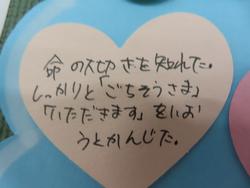 命の大切さを知れた。
しっかりと「ごちそうさま」
「いただきます」をいお
うとかんじた。